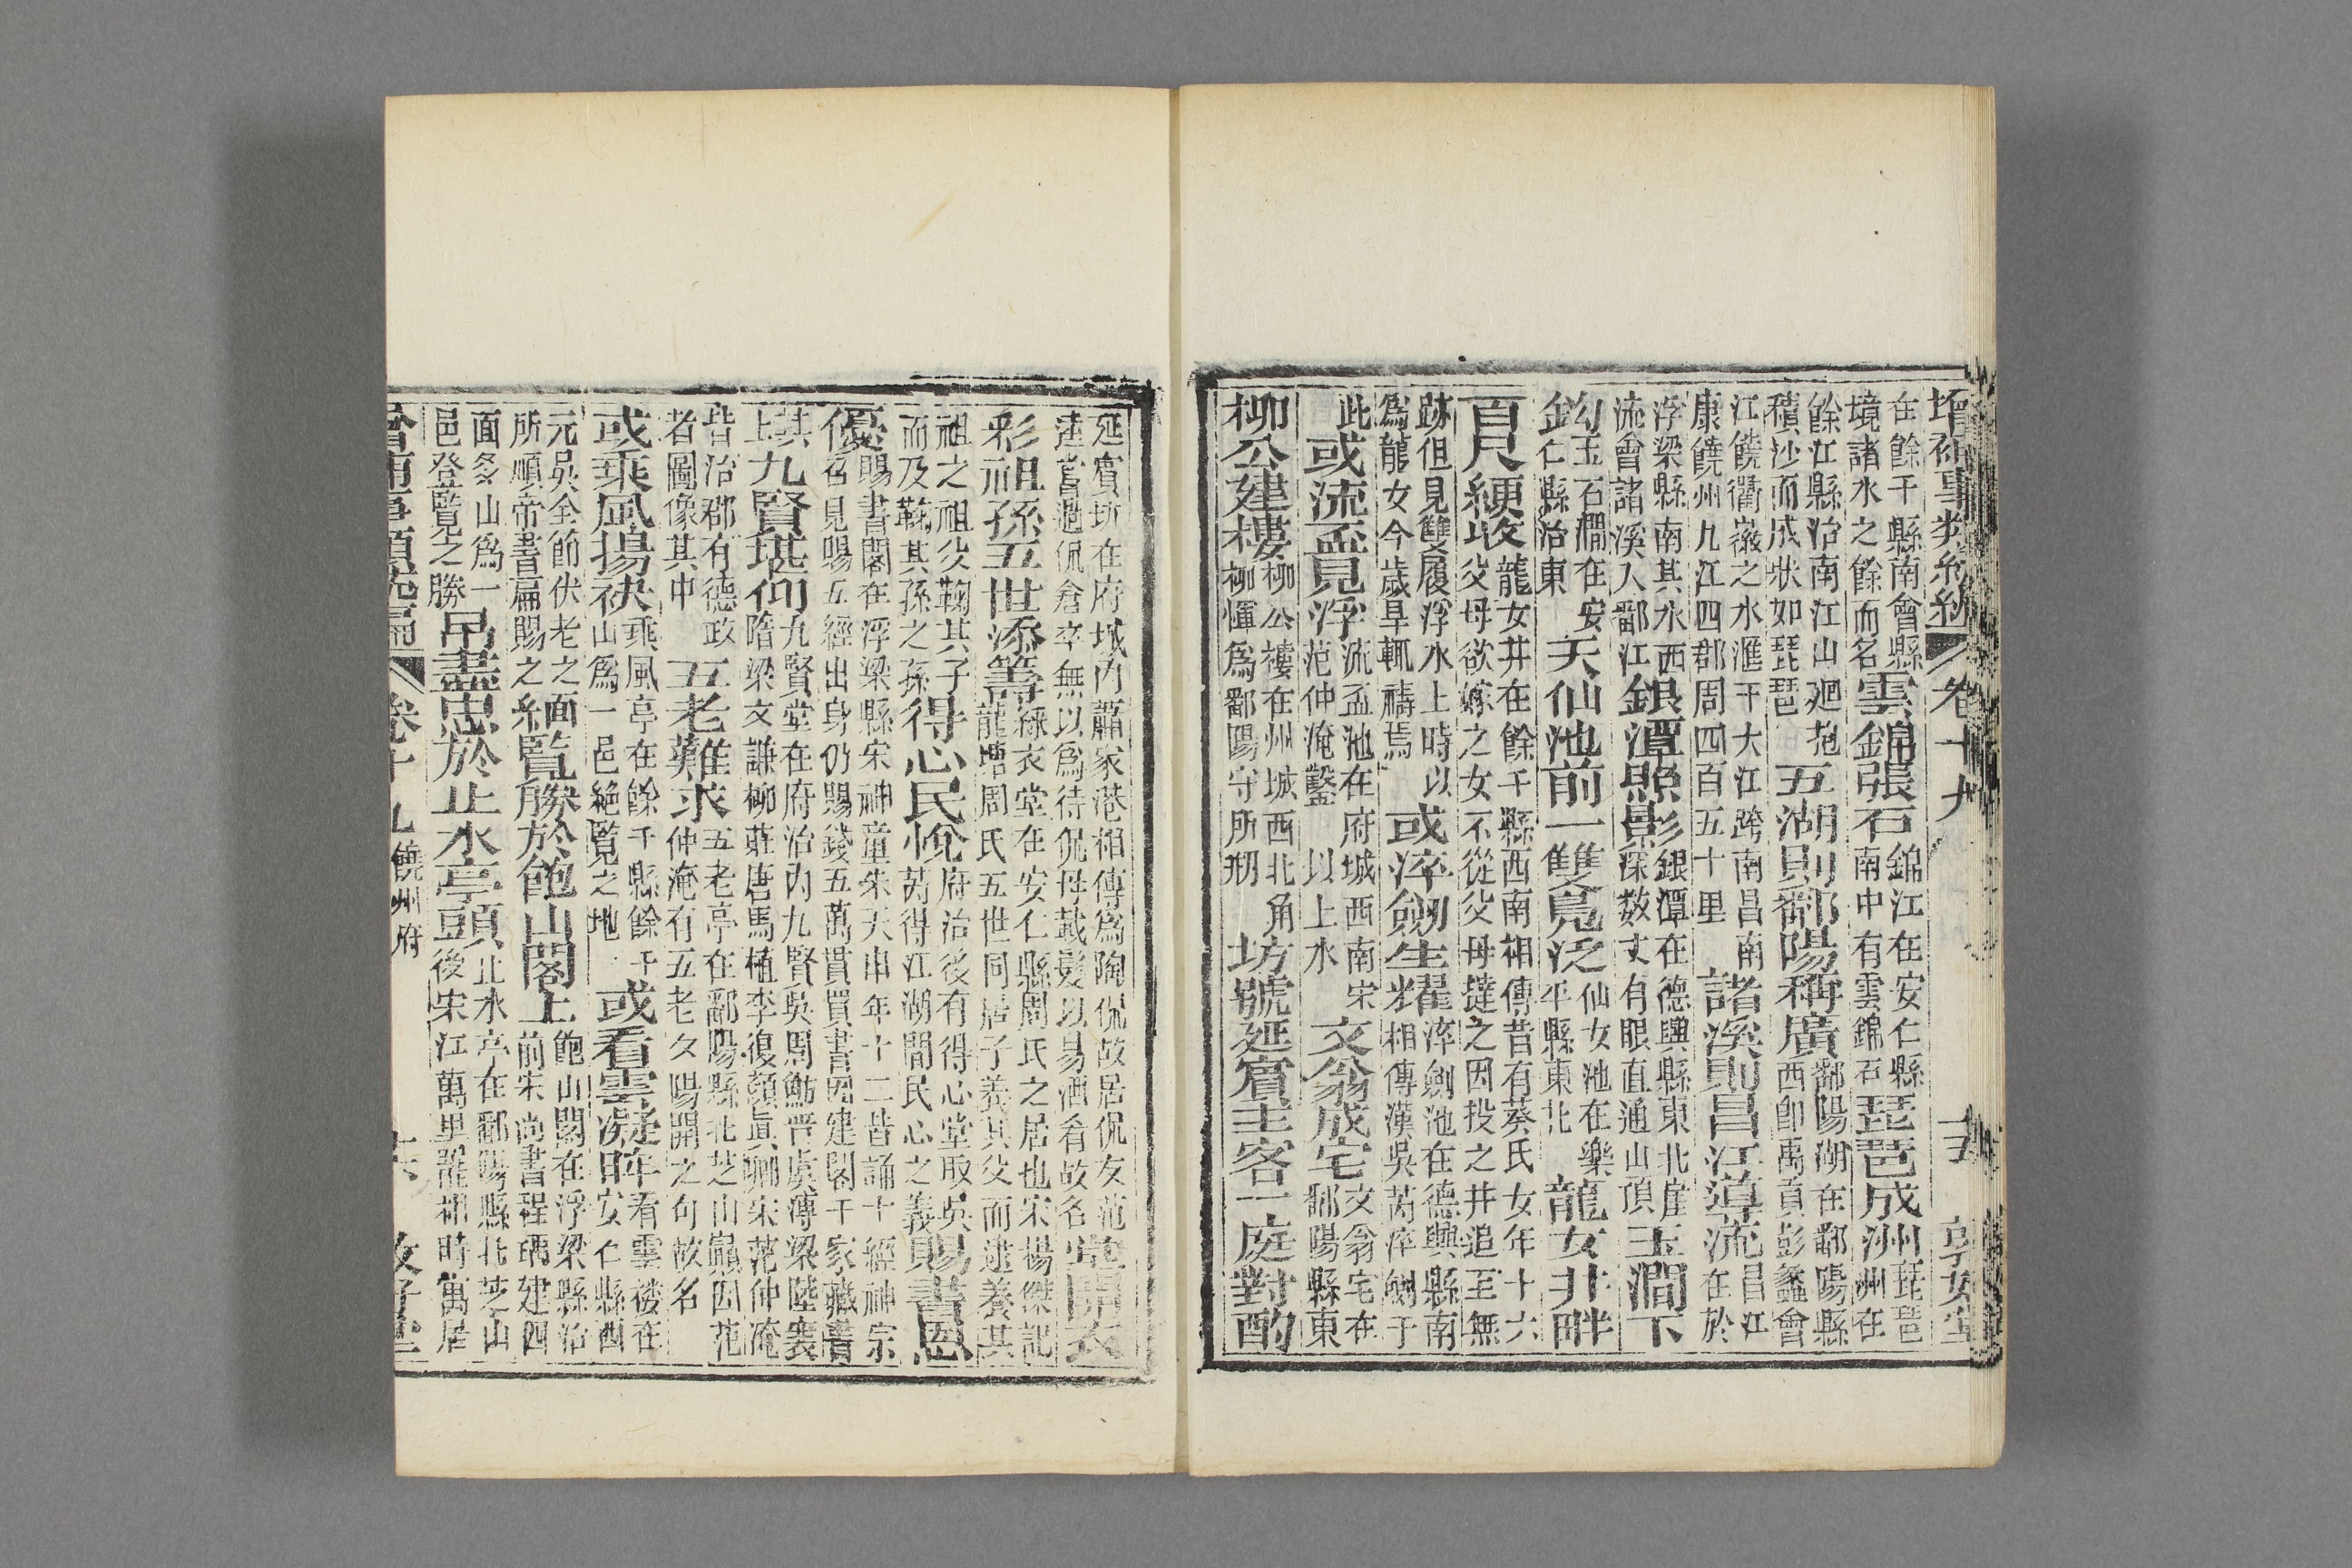 增補事類統編 卷十九 十五 敦好堂
在餘干縣南會縣境諸水之餘而名雲錦張石錦江在安仁縣南中有雲錦石琵琶成洲琵琶洲在
餘江縣治南江山廻抱積沙而成狀如琵琶五湖則鄱陽稱廣鄱陽湖在鄱陽縣西卽禹貢彭蠡會
江饒衢徽之水滙于大江跨南昌南康饒州九江四郡周四百五十里諸溪則昌江導流昌江在於
浮梁縣南其水西流會諸溪入鄱江銀潭照影銀潭在德興縣東北崖深數丈有眼直通山頂玉澗下
鈎玉石澗在安仁縣治東天仙池前一雙鳧泛仙女池在樂平縣東北龍女井畔
百尺綆收龍女井在餘干縣西南相傳昔有葵氏女年十六父母欲嫁之女不從父母撻之因投之井追至無
跡但見雙履浮水上時以爲龍女今歲旱輒禱焉或淬劒生耀淬劍池在德興縣南相傳漢吳芮淬劒于
此或流盃見浮流盃池在府城西南宋范仲淹鑿以上水文翁成宅文翁宅在鄱陽縣東
柳公建樓柳公樓在州城西北角柳惲爲鄱陽守所剏坊號延賓主客一庭對酌
延賓坊在府城內蕭家港相傳爲陶侃故居侃友范逵嘗過侃倉卒無以爲待侃母截髮以易酒肴故名堂開衣
彩祖孫五世添籌綵衣堂在安仁縣周氏之居也宋楊傑記龍塘周氏五世同居子養其父而逮養其
祖之祖父鞠其子而及鞠其孫之孫得心民悅府治後有得心堂取吳芮得江湖間民心之義賜書恩
優賜書閣在浮梁縣宋神童朱天申年十二昔誦十經神宗召見賜五經出身仍賜錢五萬貫買書因建閣于家藏書
其上九賢堪仰九賢堂在府治內九賢吳周魴晋虞溥梁陸襄隋梁文謙柳莊唐馬植李復顏眞卿宋范仲淹
皆治郡有德政者圖像其中五老難求五老亭在鄱陽縣北芝山巓因范仲淹有五老久陽開之句故名
或乘風揚袂乘風亭在餘干縣餘干山爲一邑絕覽之地或看雲凝眸看雲樓在安仁縣西
元吳全節伏老之所順帝書扁賜之緬覽勝於飽山閣上飽山閣在浮梁縣治前宋尚書程瑀建四
面多山爲一邑登覽之勝吊盡忠於止水亭頭止水亭在鄱陽縣北芝山後宋江萬里罷相時寓居
增補事類統編 卷十九饒州府 十六 敦好堂